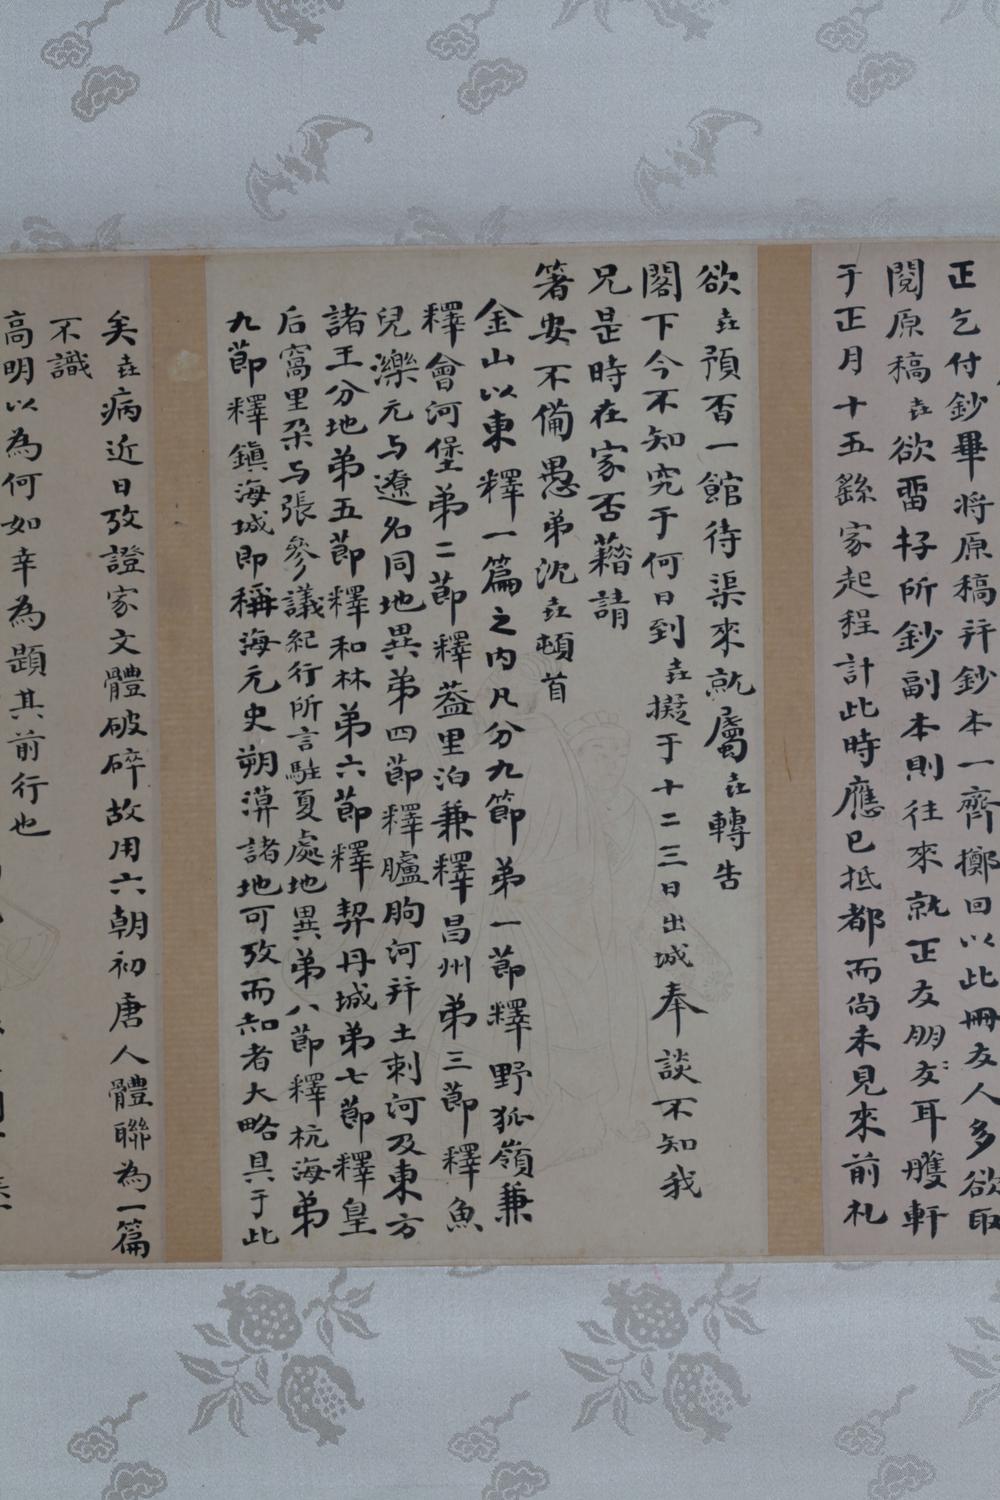 正乞付鈔畢将原稿并鈔本一齊擲回以此冊友人多欲取
閱原稿垚欲畱好所鈔副本則往來就正友朋友耳雘軒
于正月十五繇家起程計此時應已抵都而尚未見來前札
欲垚預否一館待渠來就屬垚轉告
閣下今不知究于何日到垚擬于十二三日出城奉談不知我
兄是時在家否藉請
箸安不備愚弟沈垚頓首
金山以東釋一篇之内凡分九節弟一節釋野狐嶺兼
釋會河堡弟二節釋葢里泊兼釋昌州弟三節釋魚
兒濼元与遼名同地異弟四節釋臚朐河并土剌河及東方
諸王分地弟五節釋和林弟六節釋契丹城弟七節釋皇
后窩里朶与張參議紀行所言駐夏處地異弟八節釋杭海弟
九節釋鎮海城即稱海元史朔漠諸地可攷而知者大略具于此
矣垚病近日攷證家文體破碎故用六朝初唐人體聯為一篇
不識
高明以為何如幸為題其前行也